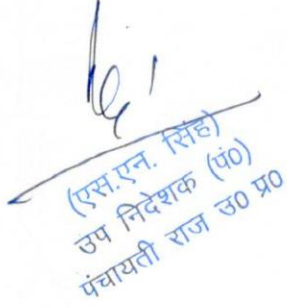 (एस.एन. सिंह)
उप निदेशक (पं0)
पंचायती राज उ0 प्र0